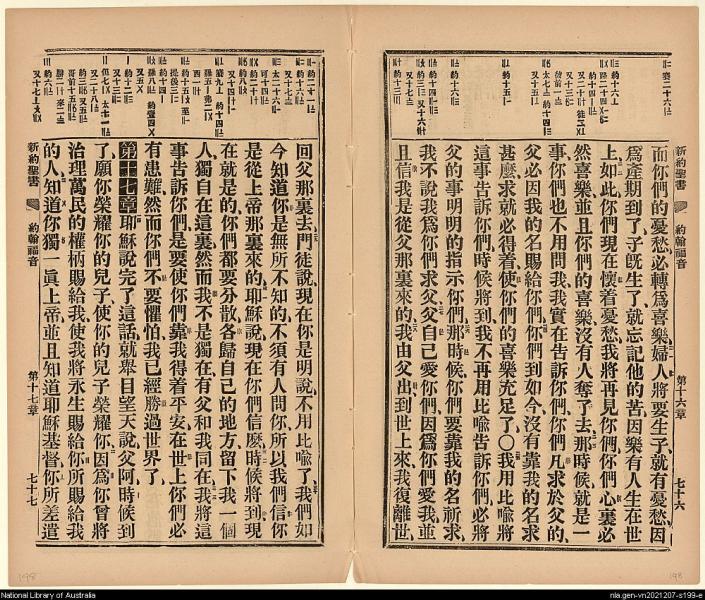 新約聖書
約翰福音
第十六章
七十六
而你們的憂愁必轉爲喜樂婦人將要生子就有憂愁因
爲產期到了子旣生了就忘記他的苦因樂有人生在世
上如此你們現在懷着憂愁我將再見你們你們心裏必
然喜樂並且你們的喜樂沒有人奪了去那時候就是一
事你們也不用問我我實在告訴你們你們凡求於父的
父必因我的名賜給你們你們到如今沒有靠我的名求
甚麼求就必得着使你們的喜樂充足了〇我用比喩將
這事告訴你們時候將到我不再用比喩告訴你們必將
父的事明明的指示你們那時候你們要靠我的名祈求
我不說我爲你們求父父自己愛你們因爲你們愛我並
且信我是從父那裏來的我由父出到世上來我復離世
回父那裏去門徒說現在你是明說不用比喩了我們如
今知道你是無所不知的不須有人問你所以我們信你
是從上帝那裏來的耶穌說現在你們信麼時候將到現
在就是的你們都要分散各歸自己的地方留下我一個
人獨自在這裏然而我不是獨在有父和我同在我將這
事告訴你們是要使你們靠我得着平安在世上你們必
有患難然而你們不要懼怕我已經勝過世界了
第十七章耶穌說完了這話就舉目望天說父阿時候到
了願你榮耀你的兒子使你的兒子榮耀你因爲你曾將
治理萬民的權柄賜給我使我將永生賜給你所賜給我
的人知道你獨一眞上帝並且知道耶穌基督你所差遣
新約聖書
約翰福音
第十七章
七十七
198
198
National Library of Australia
nla.gen-vn2021207-s199-e